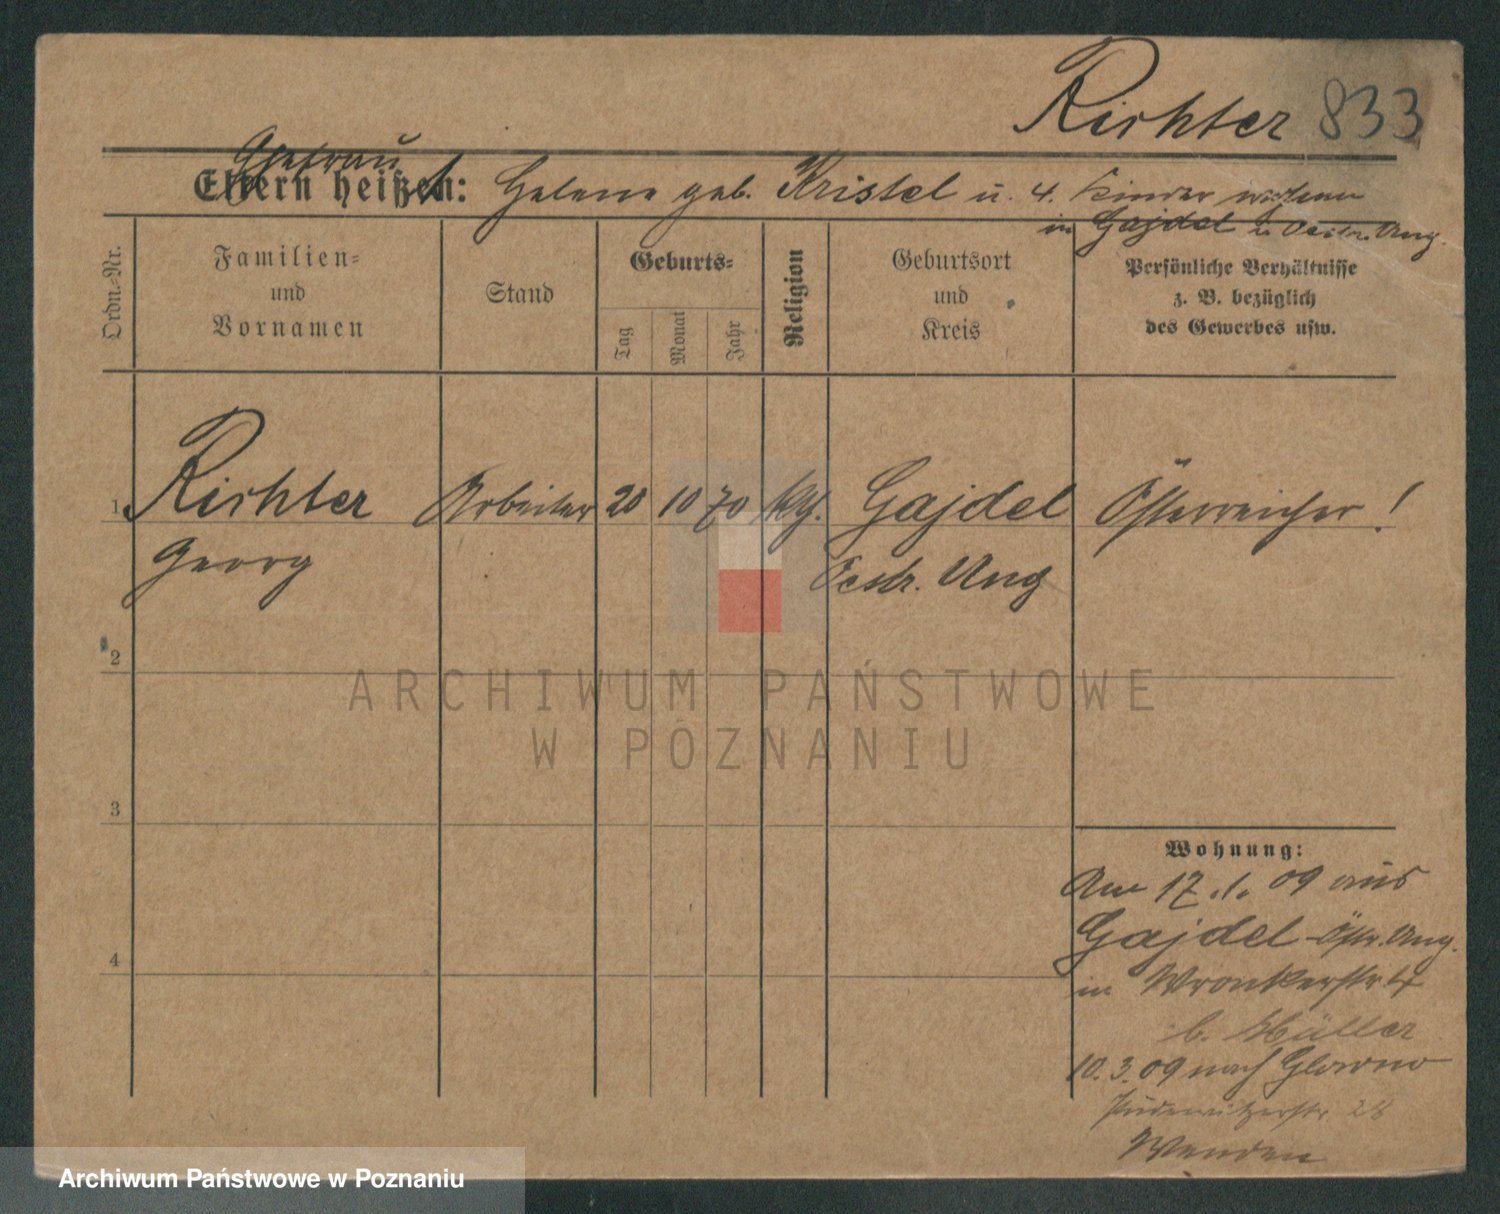 Richter 833
Ehefrau
Eltern heißen: Helene geb. Kristel u. 4. Kinder wohnen
in Gajdel in Oestr. Ung.
Ordn.-Nr.
Familien-
und
Vornamen
Stand
Geburts-
Tag
Monat
Jahr
Religion
Geburtsort
und
Kreis
Persönliche Verhältnisse
z. B. bezüglich
des Gewerbes usw.
1. Richter Arbeiter 20 10 70 kth. Gajdel Österreicher!
Georg Oestr. Ung
2
ARCHIWUM PAŃSTWOWE
W POZNANIU
3
Wohnung:
Am 17.1.09 aus
Gajdel Östr. Ung.
4
in Wronkerstr 4
b. Müller
10.3.09 nach Glowno
Pudewitzerstr 28
Wenden
Archiwum Państwowe w Poznaniu